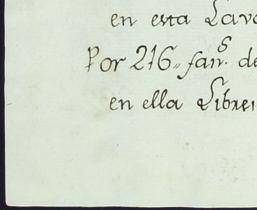 en esta Lava
Por 216,, fan.ˢ de
en ella Librei